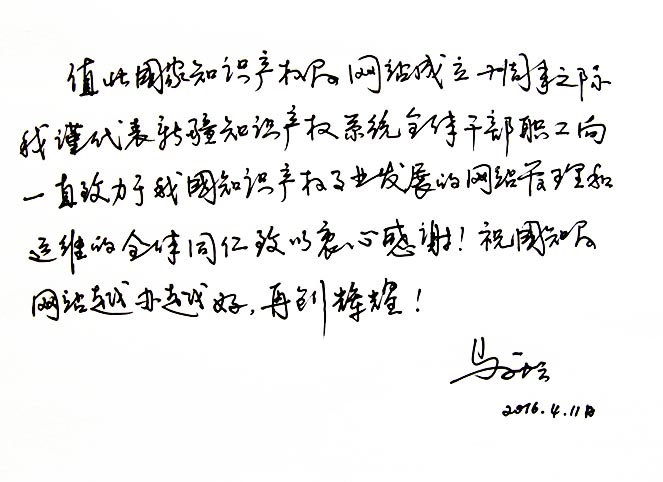 值此國家知识产权局网站成立十周年之际
我谨代表新疆知识产权系统全体干部职工向
一直致力于我國知识产权事业发展的网站管理和
运维的全体同仁致以衷心感谢！祝國知局
网站越办越好，再创辉煌！
马
2016.4.11日